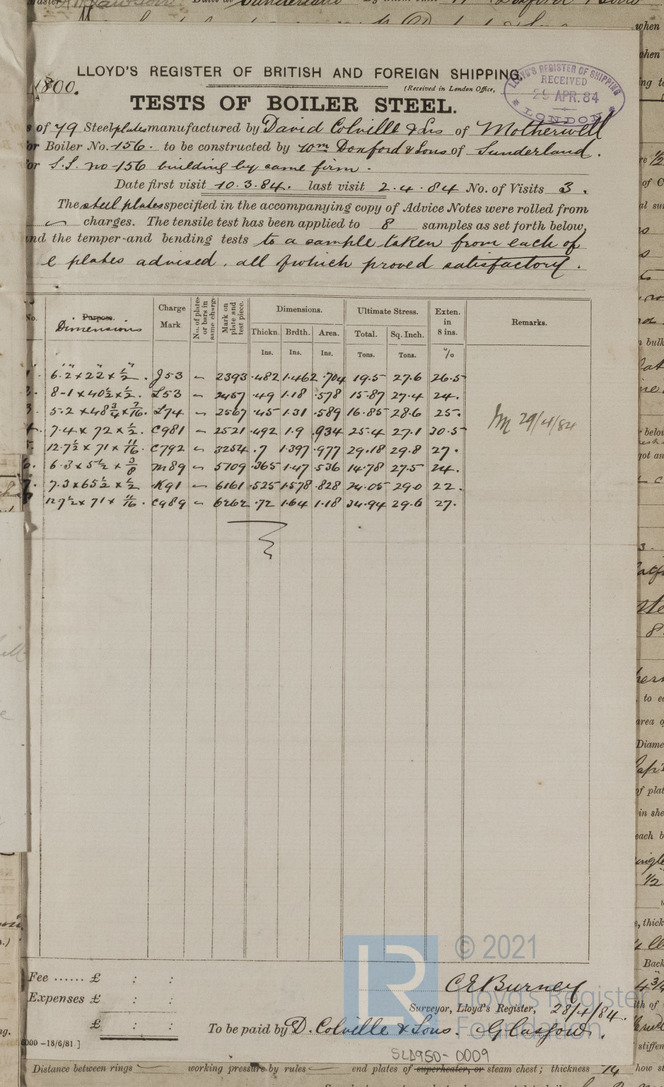 1800.
LLOYD'S REGISTER OF BRITISH AND FOREIGN SHIPPING.
(Received in London Office,
LLOYD'S REGISTER OF SHIPPING
RECEIVED
29 APR. 84
LONDON
TESTS OF BOILER STEEL.
of 79 Steel plates manufactured by David Colville & Sons of Motherwell
for Boiler No. 156. to be constructed by Wm Doxford & Sons of Sunderland.
for S.S. no 156 building by same firm.
Date first visit 10.3.84. last visit 2.4.84 No. of Visits 3.
The steel plates specified in the accompanying copy of Advice Notes were rolled from
charges. The tensile test has been applied to 8 samples as set forth below,
and the temper and bending tests to a sample taken from each of
plates advised, all of which proved satisfactory.
No. Purpose. Dimensions Charge Mark No. of plates or bars in same charge Mark on plate and test piece. Dimensions. Ultimate Stress. Exten. in 8 ins. Remarks.
Thickn. Brdth. Area. Total. Sq. Inch.
Ins. Ins. Ins. Tons. Tons. %
6.2 x 22 x 1/2 . J53 " 2393 .482 1.462 .704 19.5 27.6 26.5
8-1 x 40 1/2 x 1/2 . L53 " 2457 .49 1.18 .578 15.87 27.4 24.
5-2 x 48 3/4 x 7/16 . L74 " 2567 .45 1.31 .589 16.85 28.6 25.
7.4 x 72 x 1/2 . C981 " 2521 .492 1.9 .934 25.4 27.1 30.5
12.7 1/2 x 71 x 11/16 . C792 " 3254 .7 1.397 .977 29.18 29.8 27.
6.3 x 5 1/2 x 3/8 M89 " 5709 .365 1.47 .536 14.78 27.5 24.
7.3 x 65 1/2 x 1/2 K91 " 6161 .525 1.578 .828 24.05 29.0 22.
12.7 1/2 x 71 x 11/16 C989 " 6262 .72 1.64 1.18 34.94 29.6 27.
29/4/84
Fee ...... £ : :
Expenses £ : :
£ : :
C E Burney
Surveyor, Lloyd's Register, 28/4/84.
To be paid by D. Colville & Sons. Glasgow.
000 -18/6/81 ]
© 2021
Lloyd's Register
Foundation
SLD950-0009
Distance between rings working pressure by rules end plates of superheater, or steam chest; thickness 14